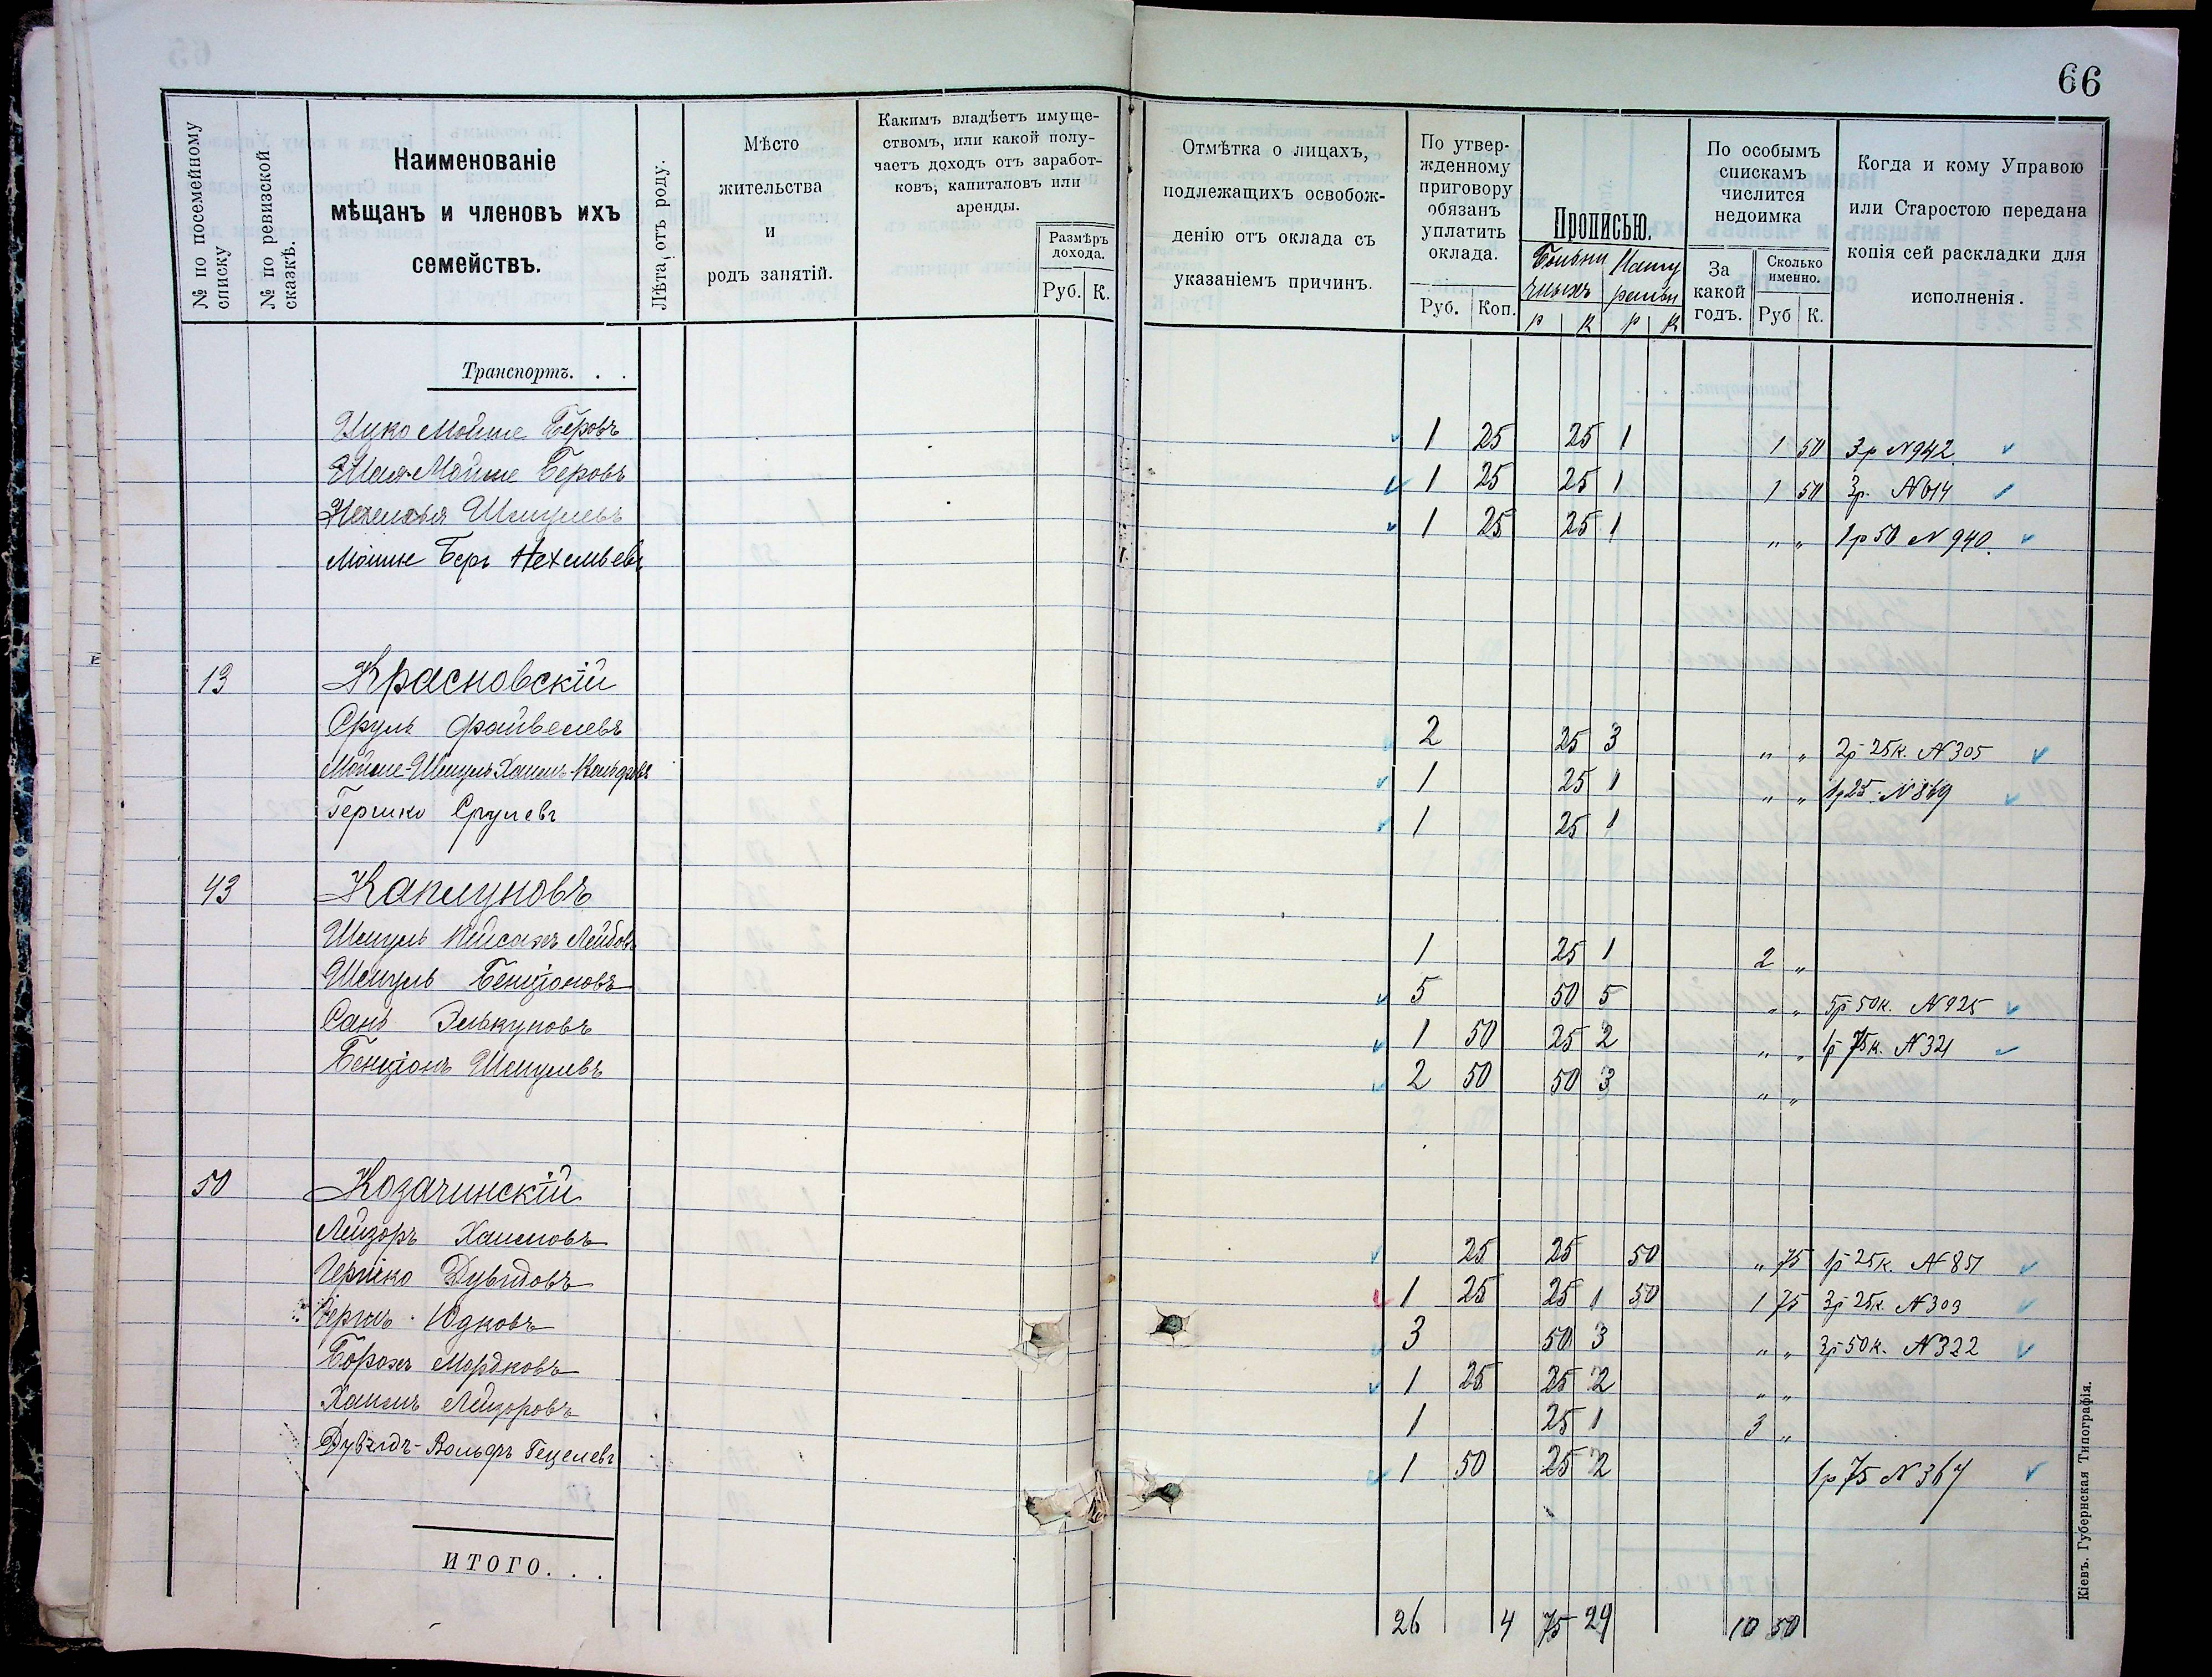 66
№ по посемейному списку
№ по ревизской сказкѣ.
Наименованіе
мѣщанъ и членовъ ихъ
семействъ.
Лѣта отъ роду.
Мѣсто
жительства
и
родъ занятій.
Какимъ владѣетъ имуще-
ствомъ, или какой полу-
чаетъ доходъ отъ заработ-
ковъ, капиталовъ или
аренды.
Размѣръ
дохода.
Руб. К.
Отмѣтка о лицахъ,
подлежащихъ освобож-
денію отъ оклада съ
указаніемъ причинъ.
По утвер-
жденному
приговору
обязанъ
уплатить
оклада.
Руб. Коп.
Прописью.
Больни
чныхъ
р к р к
По особымъ
спискамъ
числится
недоимка
За
какой
годъ.
Сколько
именно.
Руб К.
Когда и кому Управою
или Старостою передана
копія сей раскладки для
исполненія.
Транспортъ. . .
Цуко Мойше Беровъ 1 25 25 1 1 50 3р N942
Шая Мойше Беровъ 1 25 25 1 1 50 3р. N614
Нехемья Шмулевъ 1 25 25 1 „ „ 1р50 N 940.
Мойше Беръ Нехемьевъ
13 Красновскій
Сруль Файвелевъ 2 25 3 „ „ 2р 25к. N305
Мойше-Шмуль Хаимъ- 1 25 1 „ „ 1р25. N869
Гершко Срулевъ 1 25 1
43 Каплуновъ
Шмуль Пейсахъ Лейбовъ 1 25 1 2 „
Шмуль Бенціоновъ 5 50 5 „ „ 5р 50к. N925
Сань Элькуновъ 1 50 25 2 „ „ 1р 75к. N321
Бенціонъ Шмулевъ 2 50 50 3 „ „
50 Козачинскій
Лейзоръ Хаимовъ 25 25 50 „ 75 1р 25к. N851
Гершко Дувидовъ 1 25 25 1 50 1 75 3р 25к. N303
Гершъ Юдковъ 3 50 3 „ „ 3р 50к. N322
Борохъ Мордковъ 1 25 25 2 „ „
Хаимъ Лейзоровъ 1 25 1 3 „
Дувидъ-Вольфъ Гецелевъ 1 50 25 2 1р 75 N367
ИТОГО. . .
26 4 75 29 10 50
Кіевъ. Губернская Типографія.